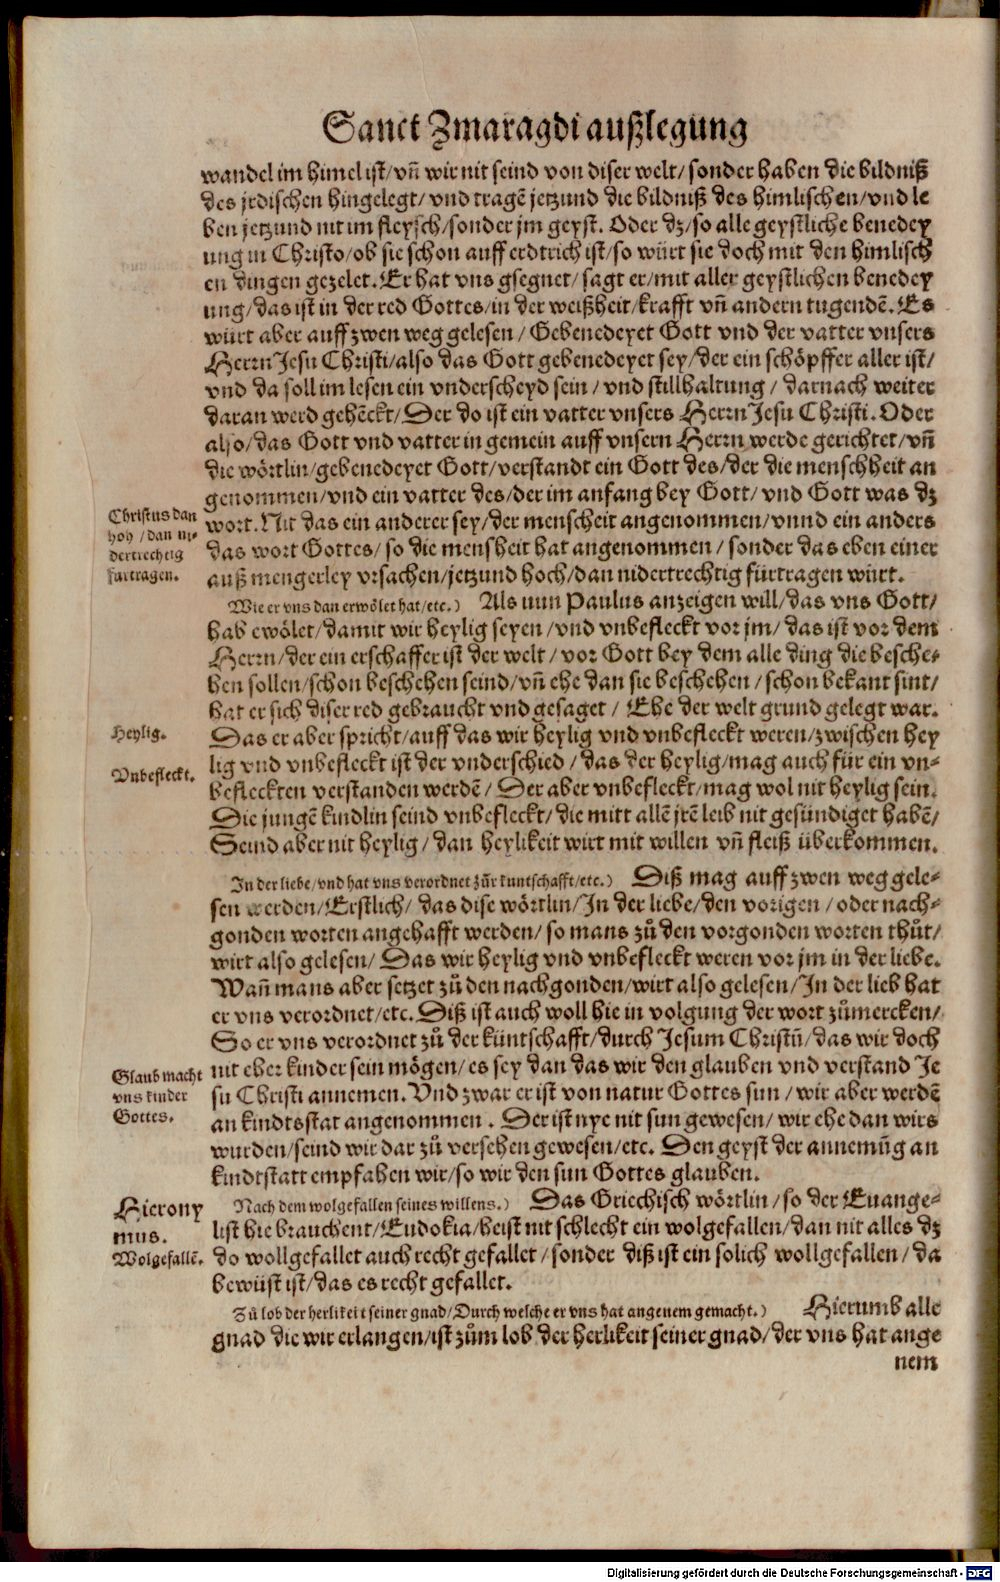 Sanct Zmaragdi außlegung
wandel im himel ist/vñ wir nit seind von diser welt/sonder haben die bildniß
des jrdischen hingelegt/vnd tragẽ jetzund die bildniß des himlischen/vnd le
ben jetzund nit im fleysch/sonder jm geyst. Oder dz/so alle geystliche benedey
ung in Christo/ob sie schon auff erdtrich ist/so würt sie doch mit den himlisch
en dingen gezelet. Er hat vns gsegnet/sagt er/mit aller geystlichen benedey
ung/das ist in der red Gottes/in der weißheit/krafft vñ andern tugendẽ. Es
würt aber auff zwen weg gelesen/Gebenedeyet Gott vnd der vatter vnsers
Herrn Jesu Christi/also das Gott gebenedeyet sey/der ein schöpffer aller ist/
vnd da soll im lesen ein vnderscheyd sein/vnd stillhaltung/darnach weiter
daran werd gehẽckt/Der do ist ein vatter vnsers Herrn Jesu Christi. Oder
also/das Gott vnd vatter in gemein auff vnsern Herrn werde gerichtet/vñ
die wörtlin/gebenedeyet Gott/verstandt ein Gott des/der die menschheit an
genommen/vnd ein vatter des/der im anfang bey Gott/vnd Gott was dz
Christus dan
hoy/dan ni-
dertrechtig
fürtragen.
wort. Nit das ein anderer sey/der menscheit angenommen/vnnd ein anders
das wort Gottes/so die mensheit hat angenommen/sonder das eben einer
auß mengerley vrsachen/jetzund hoch/dan nidertrechtig fürtragen würt.
Wie er vns dan erwölet hat/etc.) Als nun Paulus anzeigen will/das vns Gott/
hab ewölet/damit wir heylig seyen/vnd vnbefleckt vor jm/das ist vor dem
Herrn/der ein erschaffer ist der welt/vor Gott bey dem alle ding die besche-
hen sollen/schon beschehen seind/vñ ehe dan sie beschehen/schon bekant sint/
hat er sich diser red gebraucht vnd gesaget/Ehe der welt grund gelegt war.
Heylig.
Das er aber spricht/auff das wir heylig vnd vnbefleckt weren/zwischen hey
lig vnd vnbefleckt ist der vnderschied/das der heylig/mag auch für ein vn-
Vnbefleckt.
befleckten verstanden werdẽ/Der aber vnbefleckt/mag wol nit heylig sein.
Die jungẽ kindlin seind vnbefleckt/die mitt allẽ jrẽ leib nit gesündiget habẽ/
Seind aber nit heylig/dan heylikeit wirt mit willen vñ fleiß überkommen.
In der liebe/vnd hat vns verordnet zůr kuntschafft/etc.) Diß mag auff zwen weg gele-
sen werden/Erstlich/das dise wörtlin/In der liebe/den vorigen/oder nach-
gonden worten angehafft werden/so mans zů den vorgonden worten thůt/
wirt also gelesen/Das wir heylig vnd vnbefleckt weren vor jm in der liebe.
Wañ mans aber setzet zů den nachgonden/wirt also gelesen/In der lieb hat
er vns verordnet/etc. Diß ist auch woll hie in volgung der wort zůmercken/
So er vns verordnet zů der küntschafft/durch Jesum Christũ/das wir doch
Glaub macht
vns kinder
Gottes.
nit eher kinder sein mögen/es sey dan das wir den glauben vnd verstand Je
su Christi annemen. Vnd zwar er ist von natur Gottes sun/wir aber werdẽ
an kindtsstat angenommen. Der ist nye nit sun gewesen/wir ehe dan wirs
wurden/seind wir dar zů versehen gewesen/etc. Den geyst der annemũg an
kindtstatt empfahen wir/so wir den sun Gottes glauben.
Hierony
mus.
Wolgefallẽ.
Nach dem wolgefallen seines willens.) Das Griechisch wörtlin/so der Euange-
list hie brauchent/Eudokia/heist nit schlecht ein wolgefallen/dan nit alles dz
do wollgefallet auch recht gefallet/sonder diß ist ein solich wollgefallen/da
bewüst ist/das es recht gefallet.
Zů lob der herlikeit seiner gnad/Durch welche er vns hat angenem gemacht.) Hierumb alle
gnad die wir erlangen/ist zům lob der herlikeit seiner gnad/der vns hat ange
nem
Digitalisierung gefördert durch die Deutsche Forschungsgemeinschaft - DFG